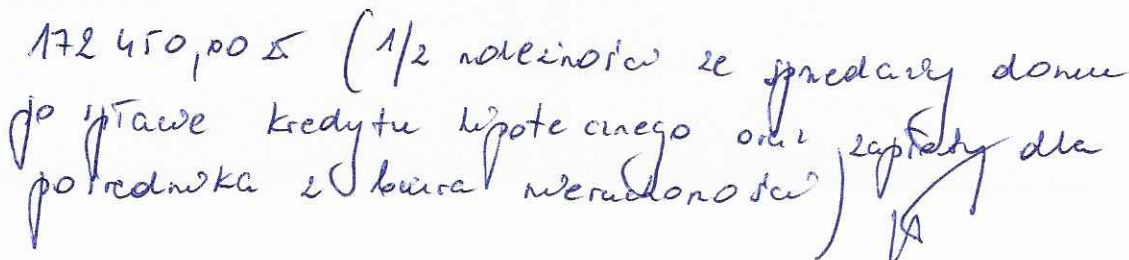 172 450,00 zł (1/2 należności ze sprzedaży domu
po spłacie kredytu hipotecznego oraz zapłaty dla
pośrednika z biura nieruchomości)